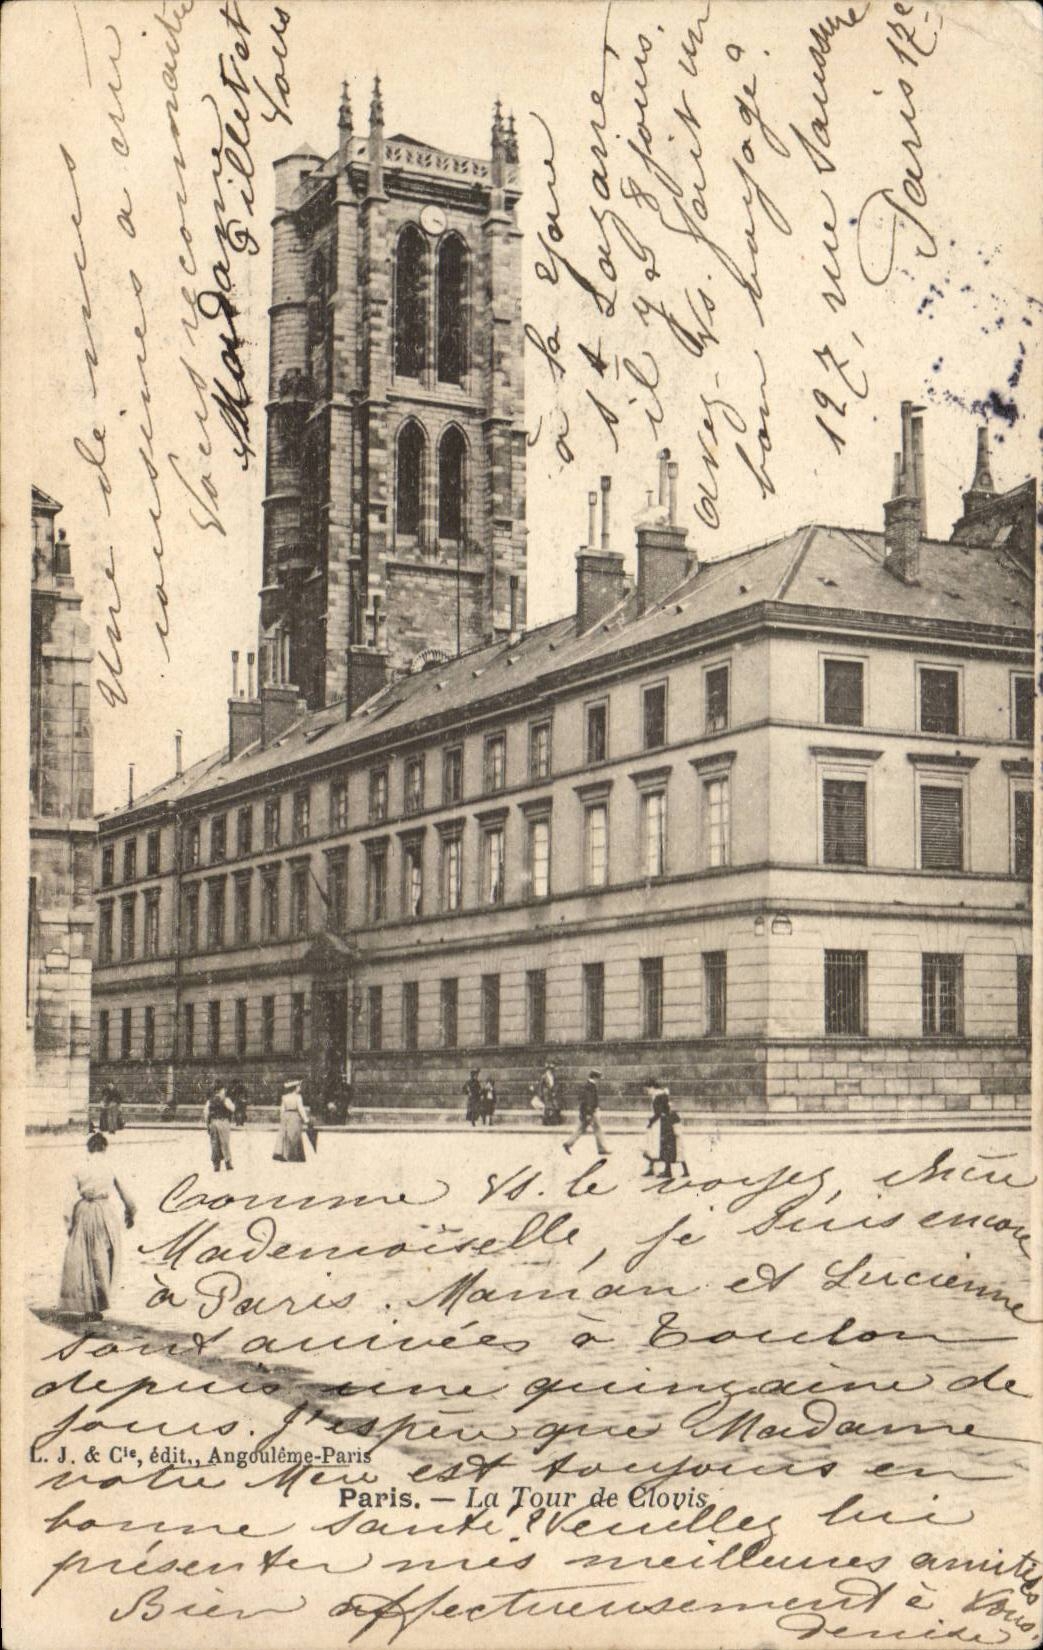 Comme Vs. le voyez, chère
Mademoiselle, je suis encore
à Paris. Maman et Lucienne
sont arrivées à Toulon
depuis une quinzaine de
jours. J'espère que Madame
votre Mère est toujours en
bonne santé? Veuillez lui
présenter mes meilleures amitiés
Bien affectueusement à vous.
Denise
L. J. & Cie, édit., Angoulême-Paris
Paris. — La Tour de Clovis
Une de mes
cousines a cru
vous reconnaître
Madame
Gillet et
Vous
à la gare
St Lazare,
il y a 8 jours.
avez-Vs. fait un
bon voyage?
127, rue Saussure
Paris 17e